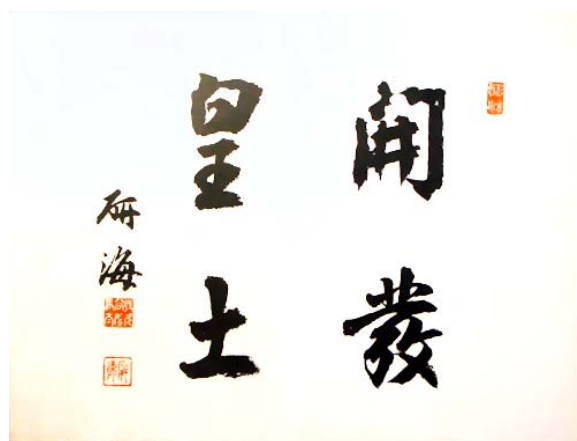 開發
皇土
硏海